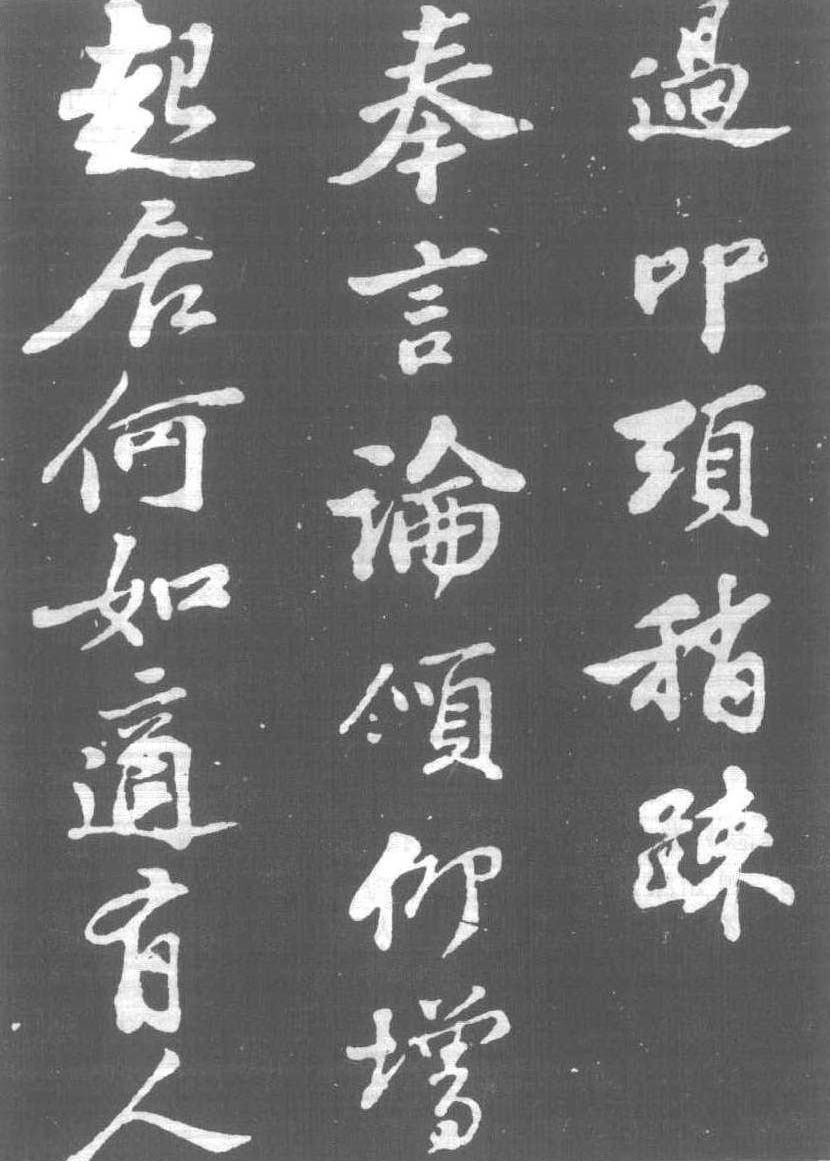 過叩頭稍踈
奉言論領仰增
起居何如適有人